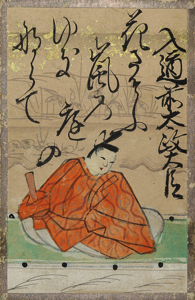 入道前太政大臣
花さそふ
嵐乃
庭の
ゆき
那らて